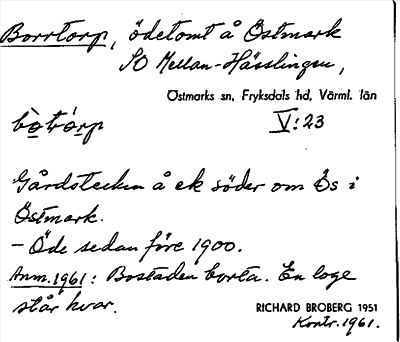 Borrtorp, ödetomt å Östmark
SO Mellan-Hässlingen,
Östmarks sn, Fryksdals hd, Värml. län
bòtórp V:23
Gårdstecken å ek söder om Ös i
Östmark.
– Öde sedan före 1900.
Anm. 1961: Bostaden borta. En loge
står kvar.
RICHARD BROBERG 1951
Kontr. 1961.